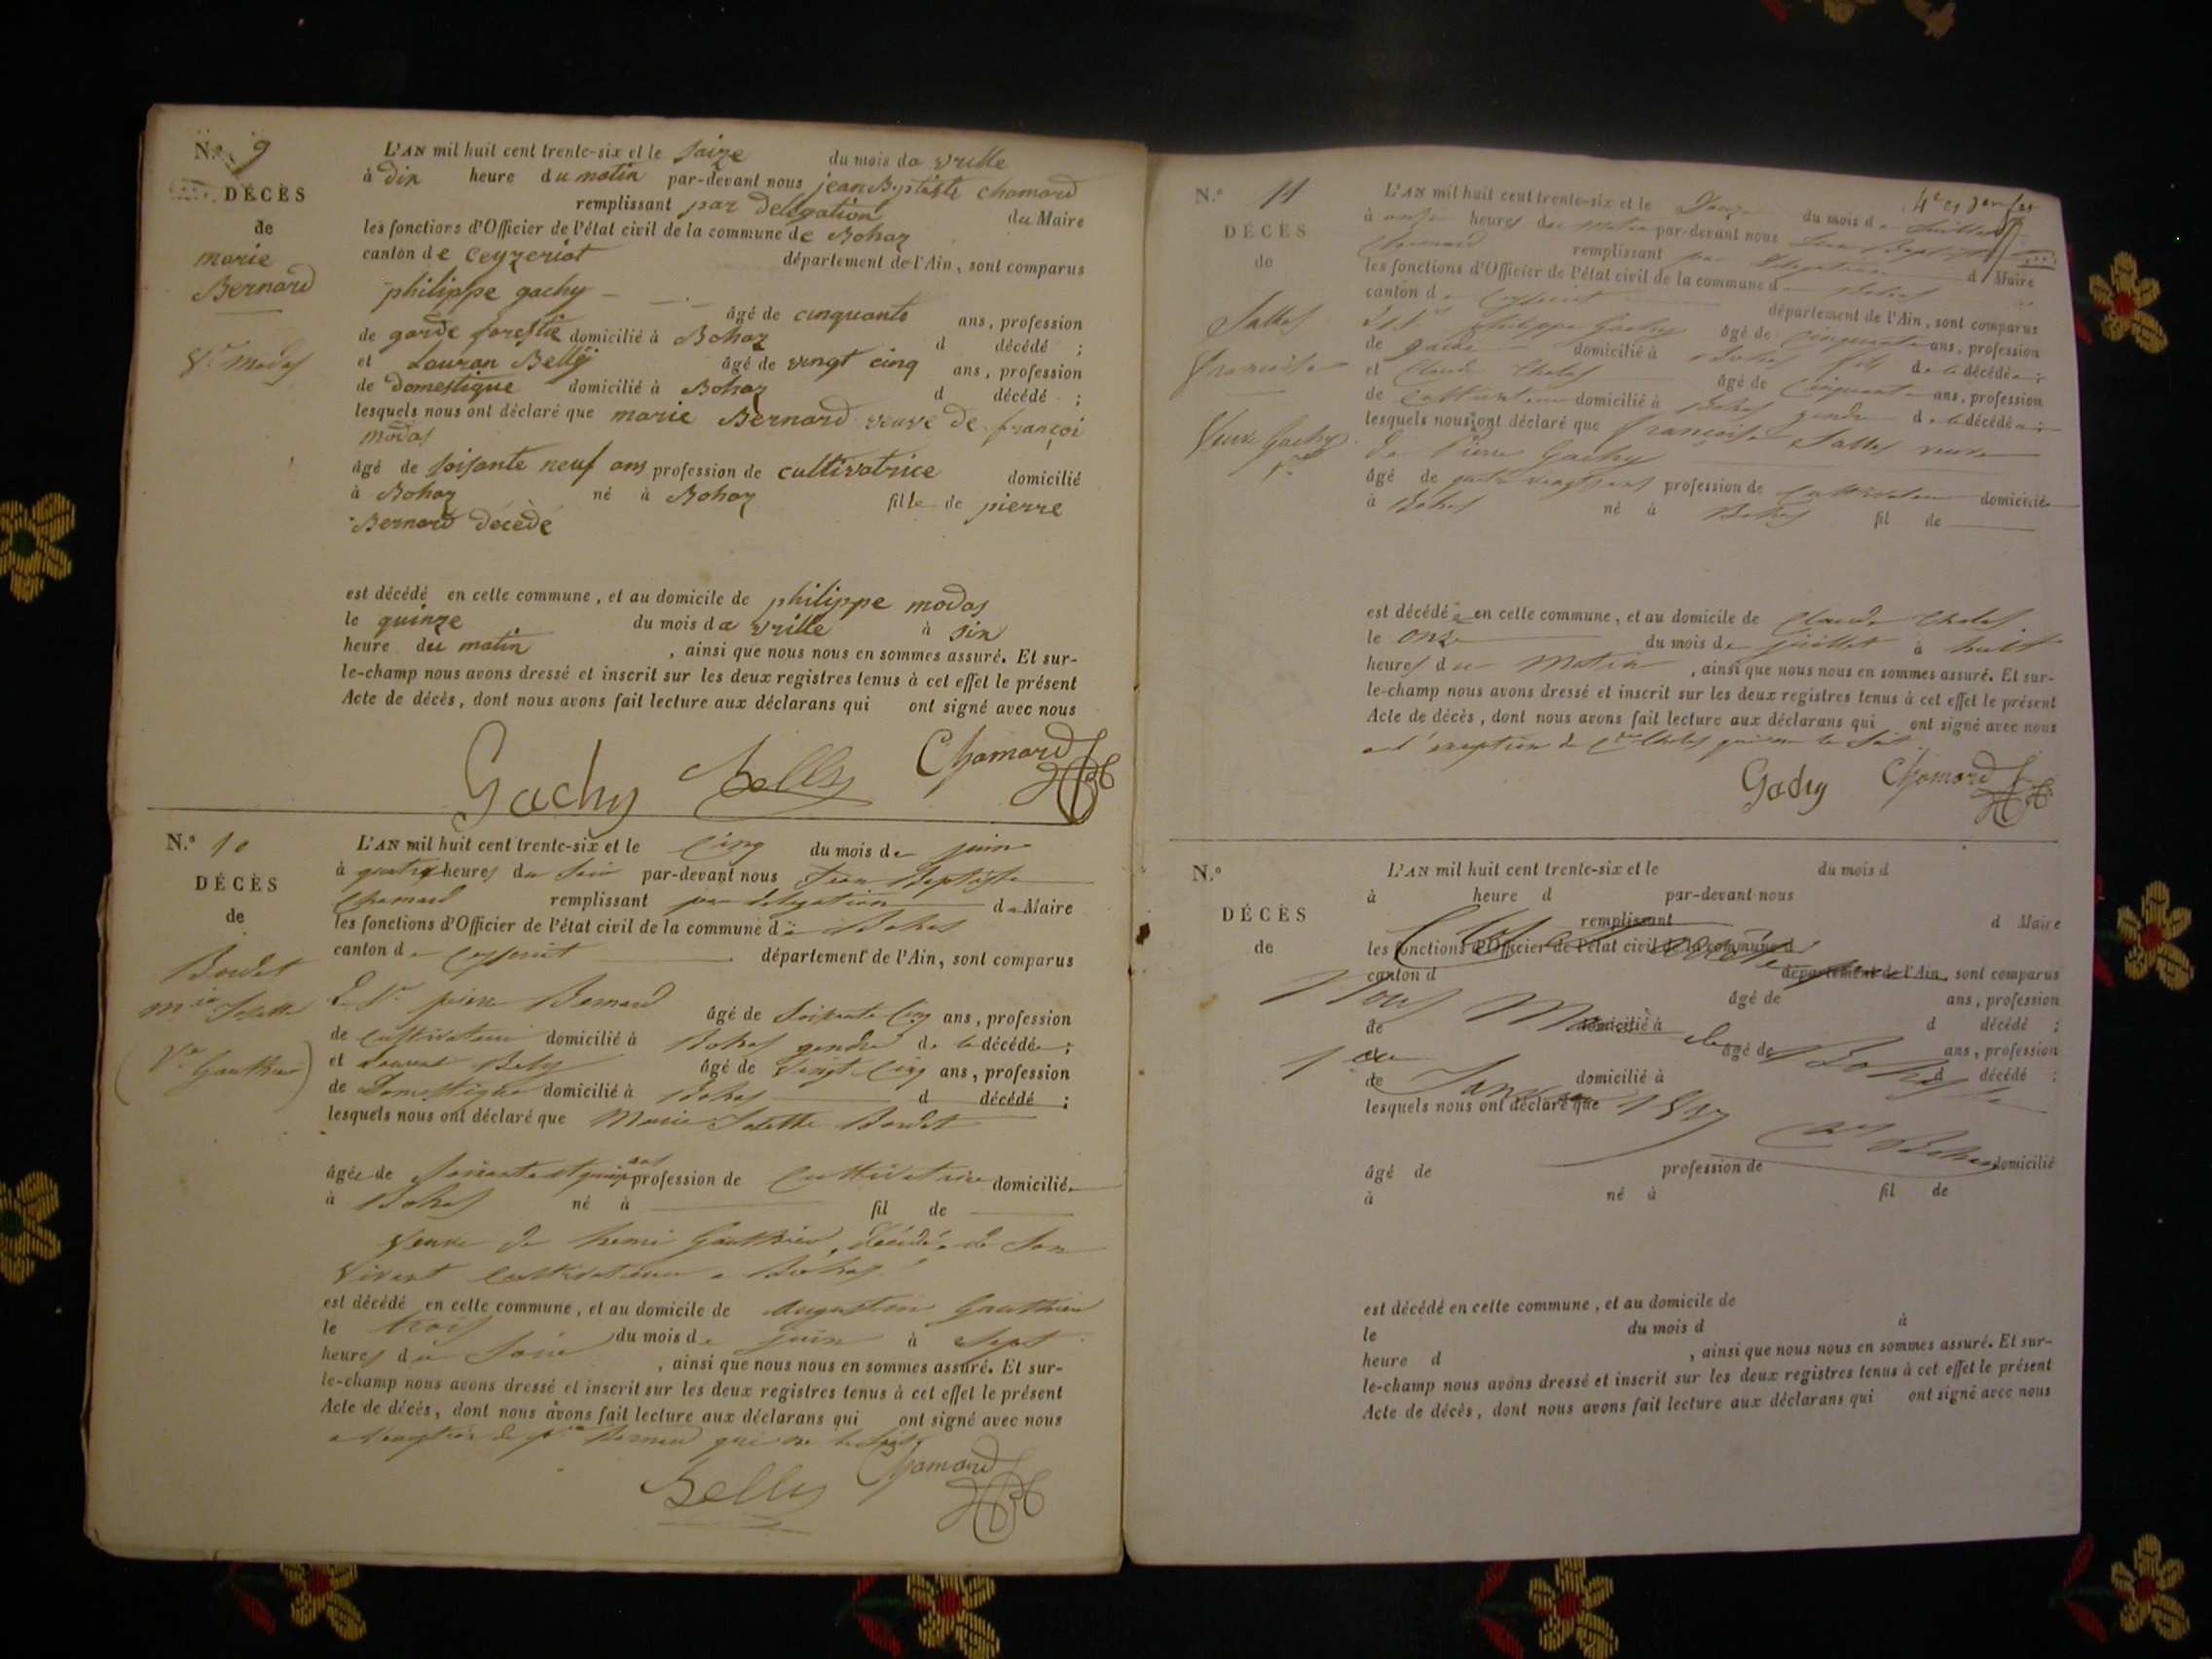 N.º 9
DÉCÈS
de
marie
Bernard
Vᵉ modas
L'AN mil huit cent trente-six et le saize du mois da vrille
à dix heure du matin par-devant nous jean Baptiste chamard
remplissant par delegation du Maire
les fonctions d'Officier de l'état civil de la commune de Bohaz
canton de ceyzeriat département de l'Ain, sont comparus
philippe gachy âgé de cinquante ans, profession
de garde forestie domicilié à Bohaz d décédé ;
et Louran Belly âgé de vingt cinq ans, profession
de domestique domicilié à Bohaz d décédé ;
lesquels nous ont déclaré que marie Bernard veuve de françoi
modas
âgé de soisante neuf ans profession de cultivatrice domicilié
à Bohaz né à Bohaz fille de pierre
Bernard décédé
est décédé en cette commune, et au domicile de philippe modas
le quinze du mois da vrille à six
heure du matin , ainsi que nous nous en sommes assuré. Et sur-
le-champ nous avons dressé et inscrit sur les deux registres tenus à cet effet le présent
Acte de décès, dont nous avons fait lecture aux déclarans qui ont signé avec nous
Gachy Belly Chamard
N.º 10
DÉCÈS
de
Bordet
mie Josette
(Vᵉ Gauthier)
L'AN mil huit cent trente-six et le cinq du mois de juin
à quatre heures du soir par-devant nous Jean Baptiste
Chamard remplissant par délégation du Maire
les fonctions d'Officier de l'état civil de la commune de Bohas
canton de département de l'Ain, sont comparus
pierre Bernard âgé de soixante cinq ans, profession
de cultivateur domicilié à Bohas gendre de la décédée ;
et Laurent Bely âgé de vingt cinq ans, profession
de Domestique domicilié à Bohas d décédé ;
lesquels nous ont déclaré que Marie Josette Bordet
âgée de soixante et quinze ans profession de cultivatrice domiciliée
à Bohas né à fil de
veuve de henri Gauthier, décédé, de son
vivant cultivateur a Bohas
est décédé en cette commune, et au domicile de Augustin Gauthier
le trois du mois de juin à sept
heures du soir , ainsi que nous nous en sommes assuré. Et sur-
le-champ nous avons dressé et inscrit sur les deux registres tenus à cet effet le présent
Acte de décès, dont nous avons fait lecture aux déclarans qui ont signé avec nous
Bernard qui ne le sait
Belly Chamard
N.º 11
DÉCÈS
de
Salles
françoise
Veuve Gachy
L'AN mil huit cent trente-six et le Douze du mois de Juillet
à onze heures du matin par-devant nous Jean Baptiste
Chamard remplissant par délégation d Maire
les fonctions d'Officier de l'état civil de la commune d Bohas
canton de département de l'Ain, sont comparus
philippe Gachy âgé de cinquante ans, profession
de garde domicilié à Bohas fils de la décédée ;
et Claude Chales âgé de cinquante ans, profession
de cultivateur domicilié à Bohas gendre de la décédée ;
lesquels nous ont déclaré que françoise Salles veuve
de Pierre Gachy
âgé de quatre vingt ans profession de cultivateur domicilié
à Bohas né à Bohas fil de
est décédée en cette commune, et au domicile de Claude Chales
le onze du mois de juillet à huit
heures du matin , ainsi que nous nous en sommes assuré. Et sur-
le-champ nous avons dressé et inscrit sur les deux registres tenus à cet effet le présent
Acte de décès, dont nous avons fait lecture aux déclarans qui ont signé avec nous
a l'exception de Chales qui ne le sait
Gachy Chamard
N.º
DÉCÈS
de
L'AN mil huit cent trente-six et le du mois d
à heure d par-devant nous
remplissant d Maire
les fonctions d'Officier de l'état civil de la commune d
Clos et arrêté
canton d département de l'Ain, sont comparus
Nous Maire de Bohas le
âgé de ans, profession
de domicilié à d décédé ;
et âgé de ans, profession
1er Janvier 1837
de domicilié à d décédé ;
lesquels nous ont déclaré que
âgé de profession de domicilié
à né à fil de
est décédé en cette commune, et au domicile de
le du mois d à
heure d , ainsi que nous nous en sommes assuré. Et sur-
le-champ nous avons dressé et inscrit sur les deux registres tenus à cet effet le présent
Acte de décès, dont nous avons fait lecture aux déclarans qui ont signé avec nous